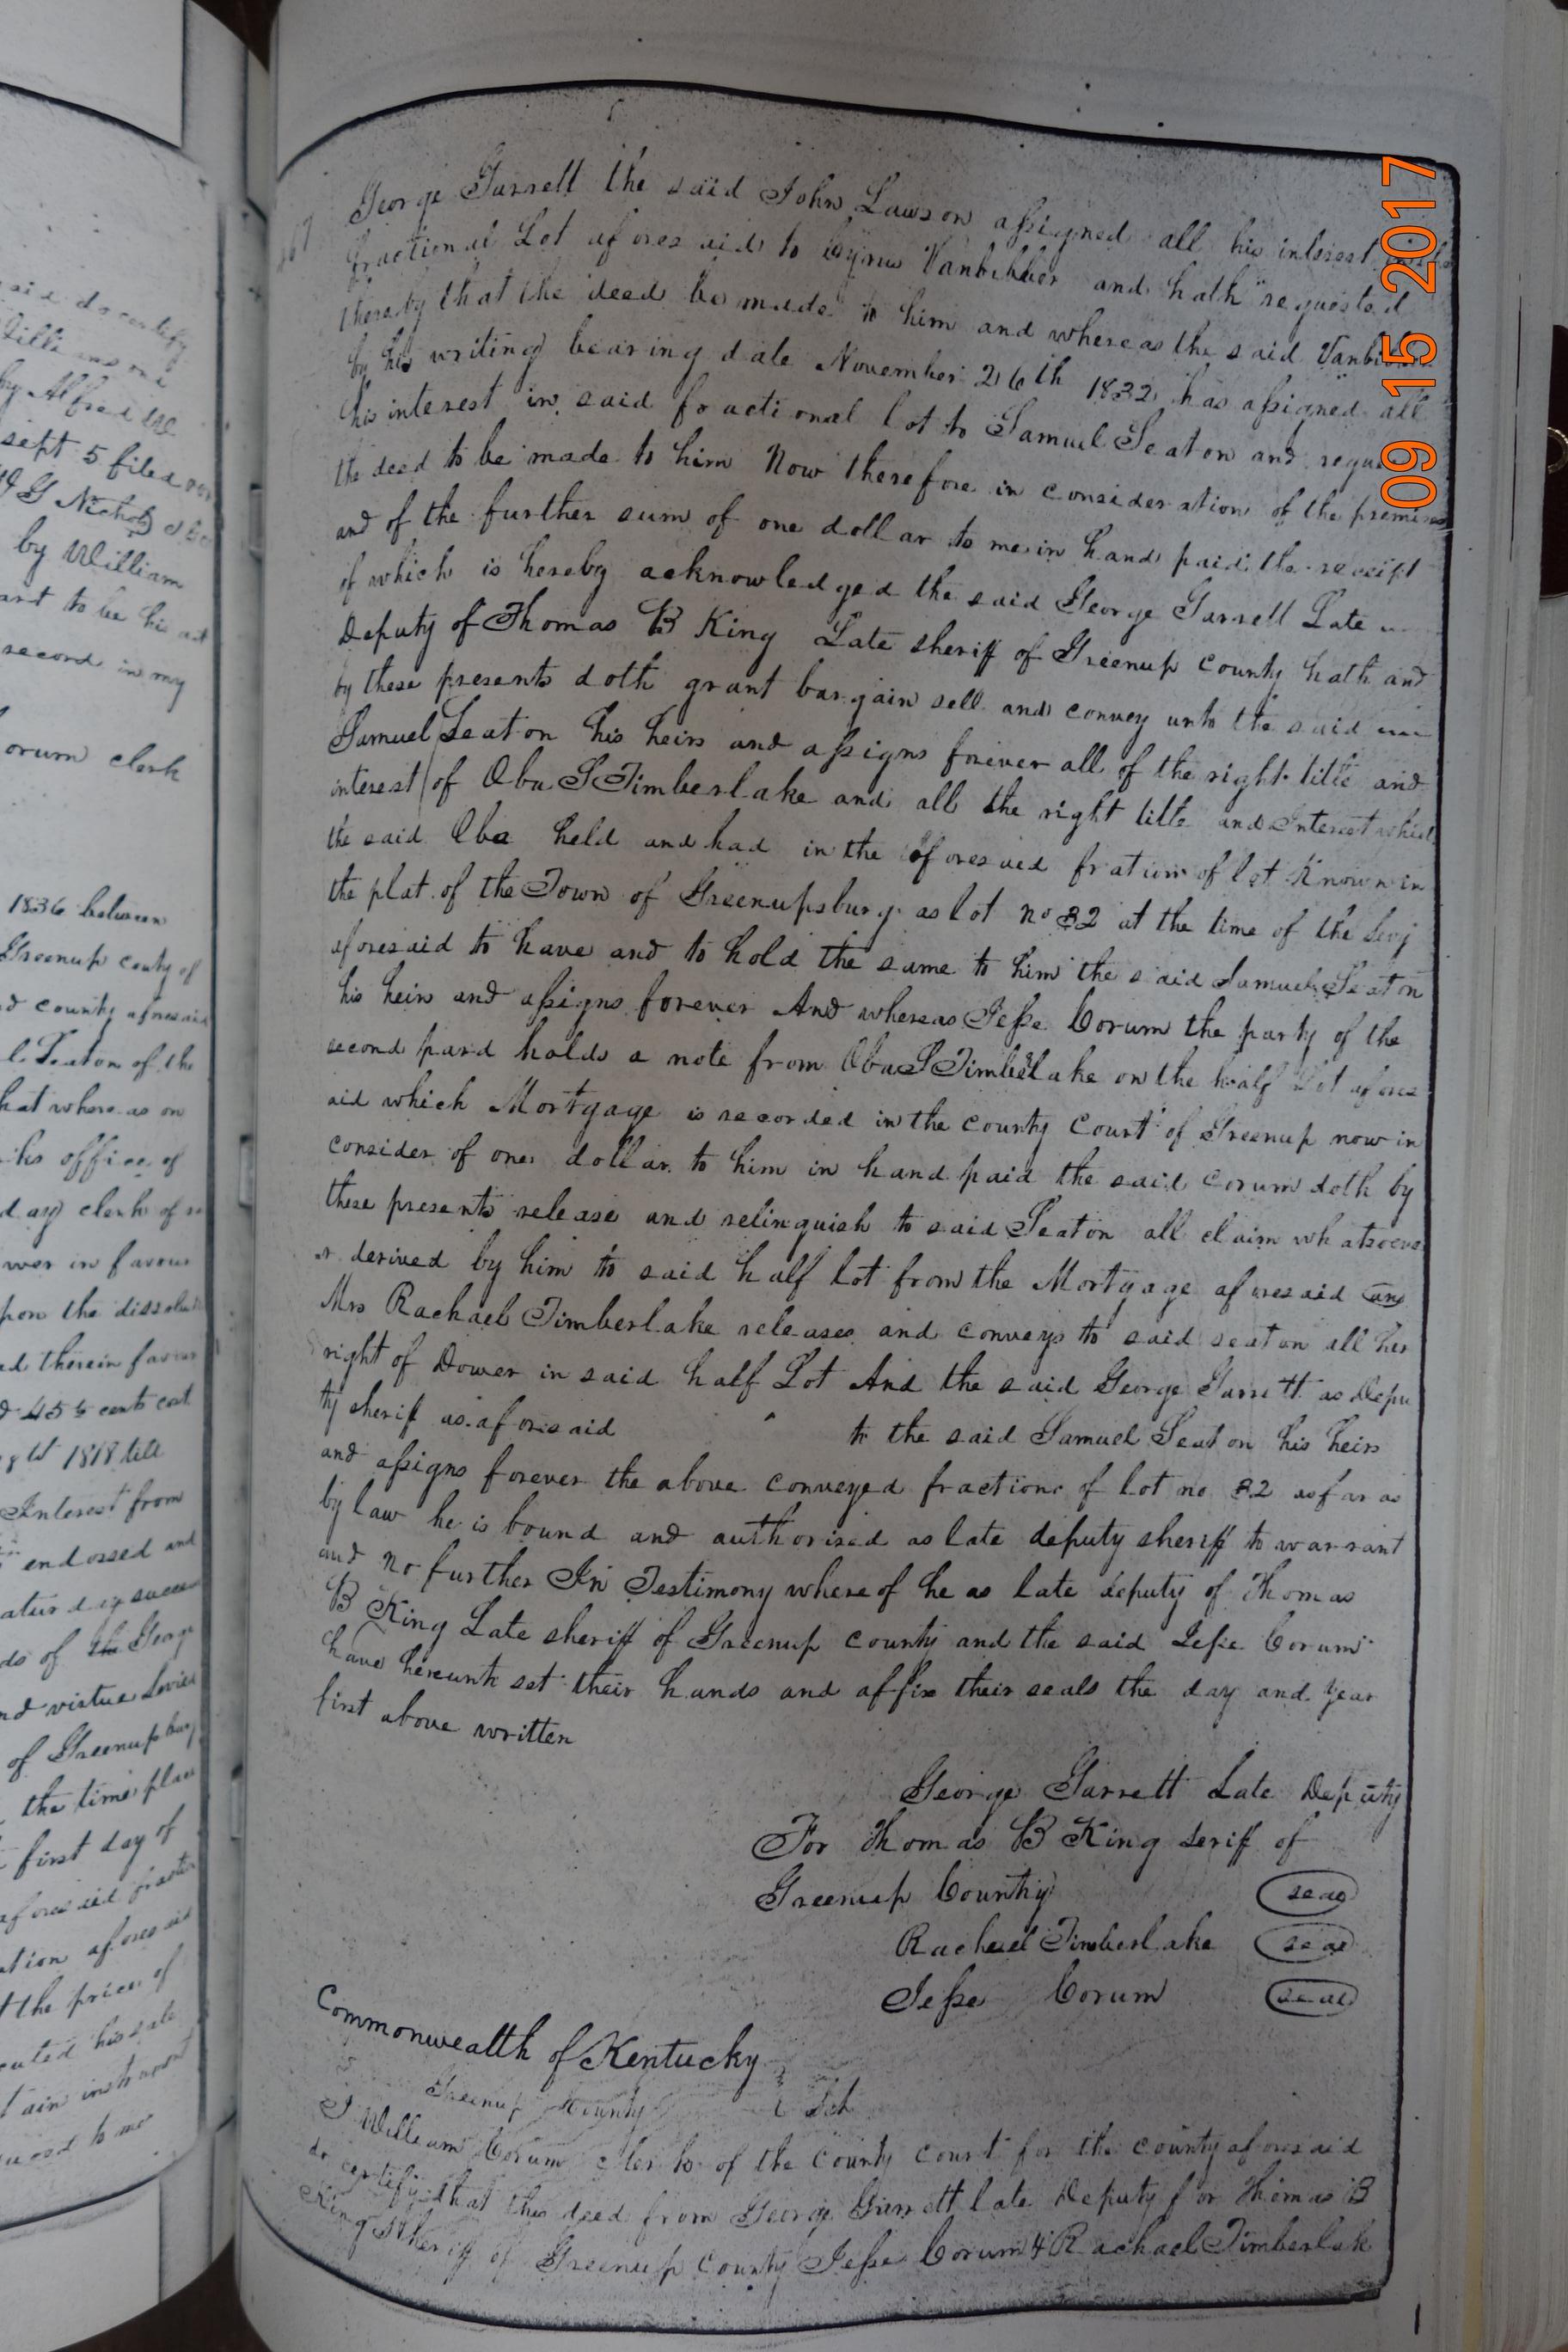 said do certify
by Alfred
sept 5 filed
G Nichols
by William
to be his act
record in my
orum clerk
1836 between
Greenup couty of
county aforesaid
Seaton of the
hat where as on
his office of
day clerk of
in favour
upon the
ed therein favour
45 ½ cents cost
1818 till
Interest from
endossed and
aturday
ds of the George
nd virtue
of Greenupsburg
the time place
first day of
aforesaid
ation aforesaid
t the price of
cuted his sale
tain
to me
George Garrett the said John Lawson assigned all his interest
fractional Lot aforesaid to Cyrus Vanbibber and hath requested
thereby that the deed be made to him and whereas the said
by his writing bearing date November 26th 1832 has assigned all
his interest in said fractional lot to Samuel Seaton and
the deed to be made to him Now therefore in consideration of the premises
and of the further sum of one dollar to me in hand paid the receipt
of which is hereby acknowledged the said George Garrett Late
Deputy of Thomas B King Late sheriff of Greenup County hath and
by these presents doth grant bargain sell and convey unto the said
Samuel Seaton his heirs and assigns forever all of the right title and
interest of Oba S Timberlake and all the right title and Interest which
the said Oba held and had in the aforesaid fration of lot Known in
the plat of the Town of Greenupsburg as lot no 32 at the time of the levy
aforesaid to have and to hold the same to him the said Samuel Seaton
his heirs and assigns forever And whereas Jesse Corum the party of the
second pard holds a note from Oba S Timberlake on the half Lot afores
aid which Mortgage is recorded in the county Court of Greenup now in
consider of one dollar to him in hand paid the said Corum doth by
these presents release and relinquish to said Seaton all claim whatsoeve
r derived by him to said half lot from the Mortgage aforesaid and
Mrs Rachael Timberlake releases and conveys to said seaton all her
right of Dower in said half Lot And the said George Garrett as Depu
ty sheriff as aforesaid to the said Samuel Seaton his heirs
and assigns forever the above conveyed fraction of lot no 32 as far as
by law he is bound and authorised as late deputy sheriff to warrant
and no further In Testimony whereof he as late deputy of Thomas
B King Late sheriff of Greenup county and the said Jesse Corum
have hereunto set their hands and affix their seals the day and year
first above written
George Garrett Late Deputy
For Thomas B King Seriff of
Greenup County seal
Rachael Timberlake seal
Jesse Corum seal
Commonwealth of Kentucky
Greenup County Sct
I William Corum Clerk of the County court for the county aforesaid
do certify that this deed from George Garrett late Deputy for Thomas B
King Sheriff of Greenup County Jesse Corum & Rachael Timberlak
09 15 2017